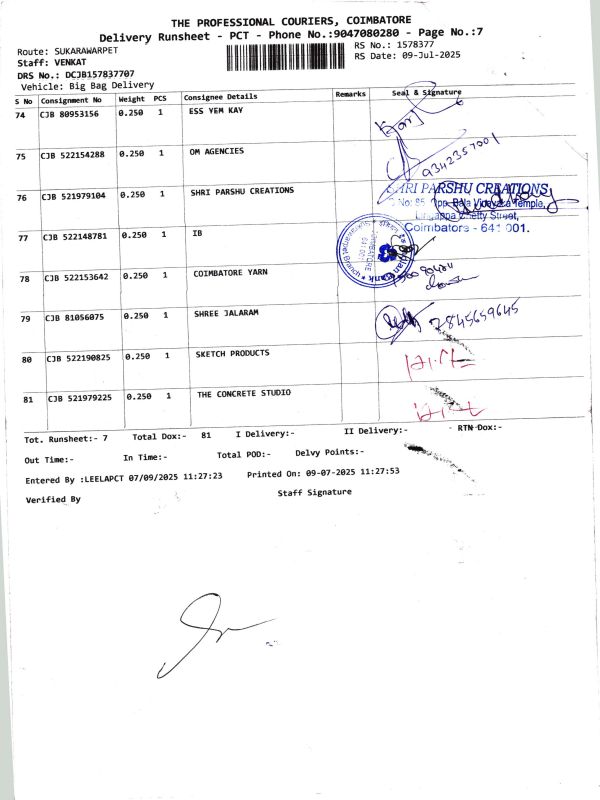 THE PROFESSIONAL COURIERS, COIMBATORE
Delivery Runsheet - PCT - Phone No.:9047080280 - Page No.:7
Route: SUKARAWARPET
RS No.: 1578377
Staff: VENKAT
RS Date: 09-Jul-2025
DRS No.: DCJB157837707
Vehicle: Big Bag Delivery
S No Consignment No Weight PCS Consignee Details Remarks Seal & Signature
74 CJB 80953156 0.250 1 ESS YEM KAY
75 CJB 522154288 0.250 1 OM AGENCIES
9342357001
76 CJB 521979104 0.250 1 SHRI PARSHU CREATIONS
SHRI PARSHU CREATIONS
No: 85, Opp. Bala Vinayaka Temple,
Lingappa Chetty Street,
Coimbatore - 641 001.
77 CJB 522148781 0.250 1 IB
78 CJB 522153642 0.250 1 COIMBATORE YARN
79 CJB 81056075 0.250 1 SHREE JALARAM
7845659645
80 CJB 522190825 0.250 1 SKETCH PRODUCTS
81 CJB 521979225 0.250 1 THE CONCRETE STUDIO
Tot. Runsheet:- 7 Total Dox:- 81 I Delivery:- II Delivery:- RTN Dox:-
Out Time:- In Time:- Total POD:- Delvy Points:-
Entered By :LEELAPCT 07/09/2025 11:27:23 Printed On: 09-07-2025 11:27:53
Verified By Staff Signature